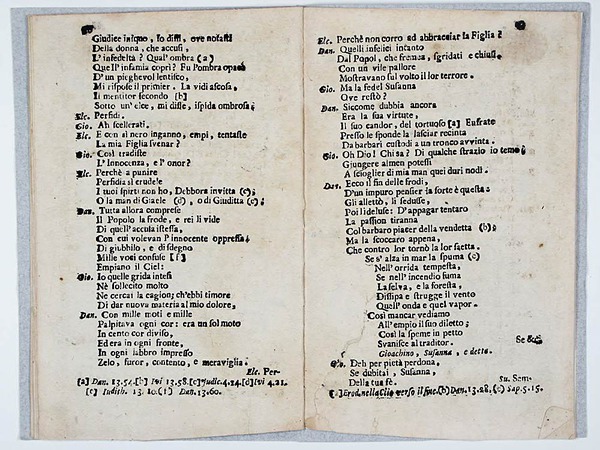 Giudice iniquo, Io dissi, ove notasti
Della donna, che accusi,
L'infedeltà? Qual'ombra (a)
Quell'infamia coprì? Fu l'ombra opaca
D'un pieghevol lentisco,
Mi rispose il primier. La vidi ascosa,
Il mentitor secondo [b]
Sotto un'elce, mi disse, ispida ombrosa;
Elc. Perfidi.
Gio. Ah scellerati.
Elc. E con sì nero inganno, empi, tentaste
La mia Figlia svenar?
Gio. Così tradiste
L'Innocenza, e l'onor?
Elc. Perchè a punire
Perfidia sì crudele
I tuoi spirti non ho, Debbora invitta (c);
O la man di Giaele (d), o di Giuditta (e);
Dan. Tutta allora comprese
Il Popolo la frode, e rei li vide
Di quell'accusa istessa,
Con cui volevan l'innocente oppressa;
Di giubbilo, e di sdegno
Mille voci confuse [f]
Empiano il Ciel:
Gio. Io quelle grida intesi
Nè sollecito molto
Ne cercai la cagion; ch'ebbi timore
Di dar nuova materia al mio dolore,
Dan. Con mille moti e mille
Palpitava ogni cor: era un sol moto
In cento cor diviso,
Ed era in ogni fronte,
In ogni labbro impresso
Zelo, furor, contento, e meraviglia.
Elc. Per-
[a] Dan. 13.54. [b] Ivi 13.58. [c] Judic. 4.14. [d] Ivi 4.21.
(e) Judith. 13. 10. (f) Dan. 13.60.
Elc. Perchè non corro ad abbracciar la Figlia?
Dan. Quelli infelici intanto
Dal Popol, che fremea, sgridati e chiusi,
Con un vile pallore
Mostravano sul volto il lor terrore.
Gio. Ma la fedel Susanna
Ove restò?
Dan. Siccome dubbia ancora
Era la sua virtute,
Il suo candor, del tortuoso [a] Eufrate
Presso le sponde la lasciar recinta
Da barbari custodi a un tronco avvinta.
Gio. Oh Dio! Chi sa? Di qualche strazio io temo;
Giungere almen potessi
A scioglier di mia man quei duri nodi.
Dan. Ecco il fin delle frodi,
D'un impuro pensier la sorte è questa:
Gli allettò, li sedusse,
Poi li deluse: D'appagar tentaro
La passion tiranna
Col barbaro piacer della vendetta (b);
Ma la scoccaro appena,
Che contro lor tornò la lor saetta.
Se s'alza in mar la spuma (c)
Nell'orrida tempesta,
Se nell'incendio fuma
La selva, e la foresta,
Dissipa e strugge il vento
Quell'onda e quel vapor.
Così mancar vediamo
All'empio il suo diletto;
Così la speme in petto
Svanisce al traditor.
Gioachino, Susanna, e detto.
Gio. Deh per pietà perdona,
Se dubitai, Susanna,
Della tua fè.
Su. Sem-
[a] Erod. nella Clio verso il fine. (b) Dan. 13.28. (c) Sap. 5.15.